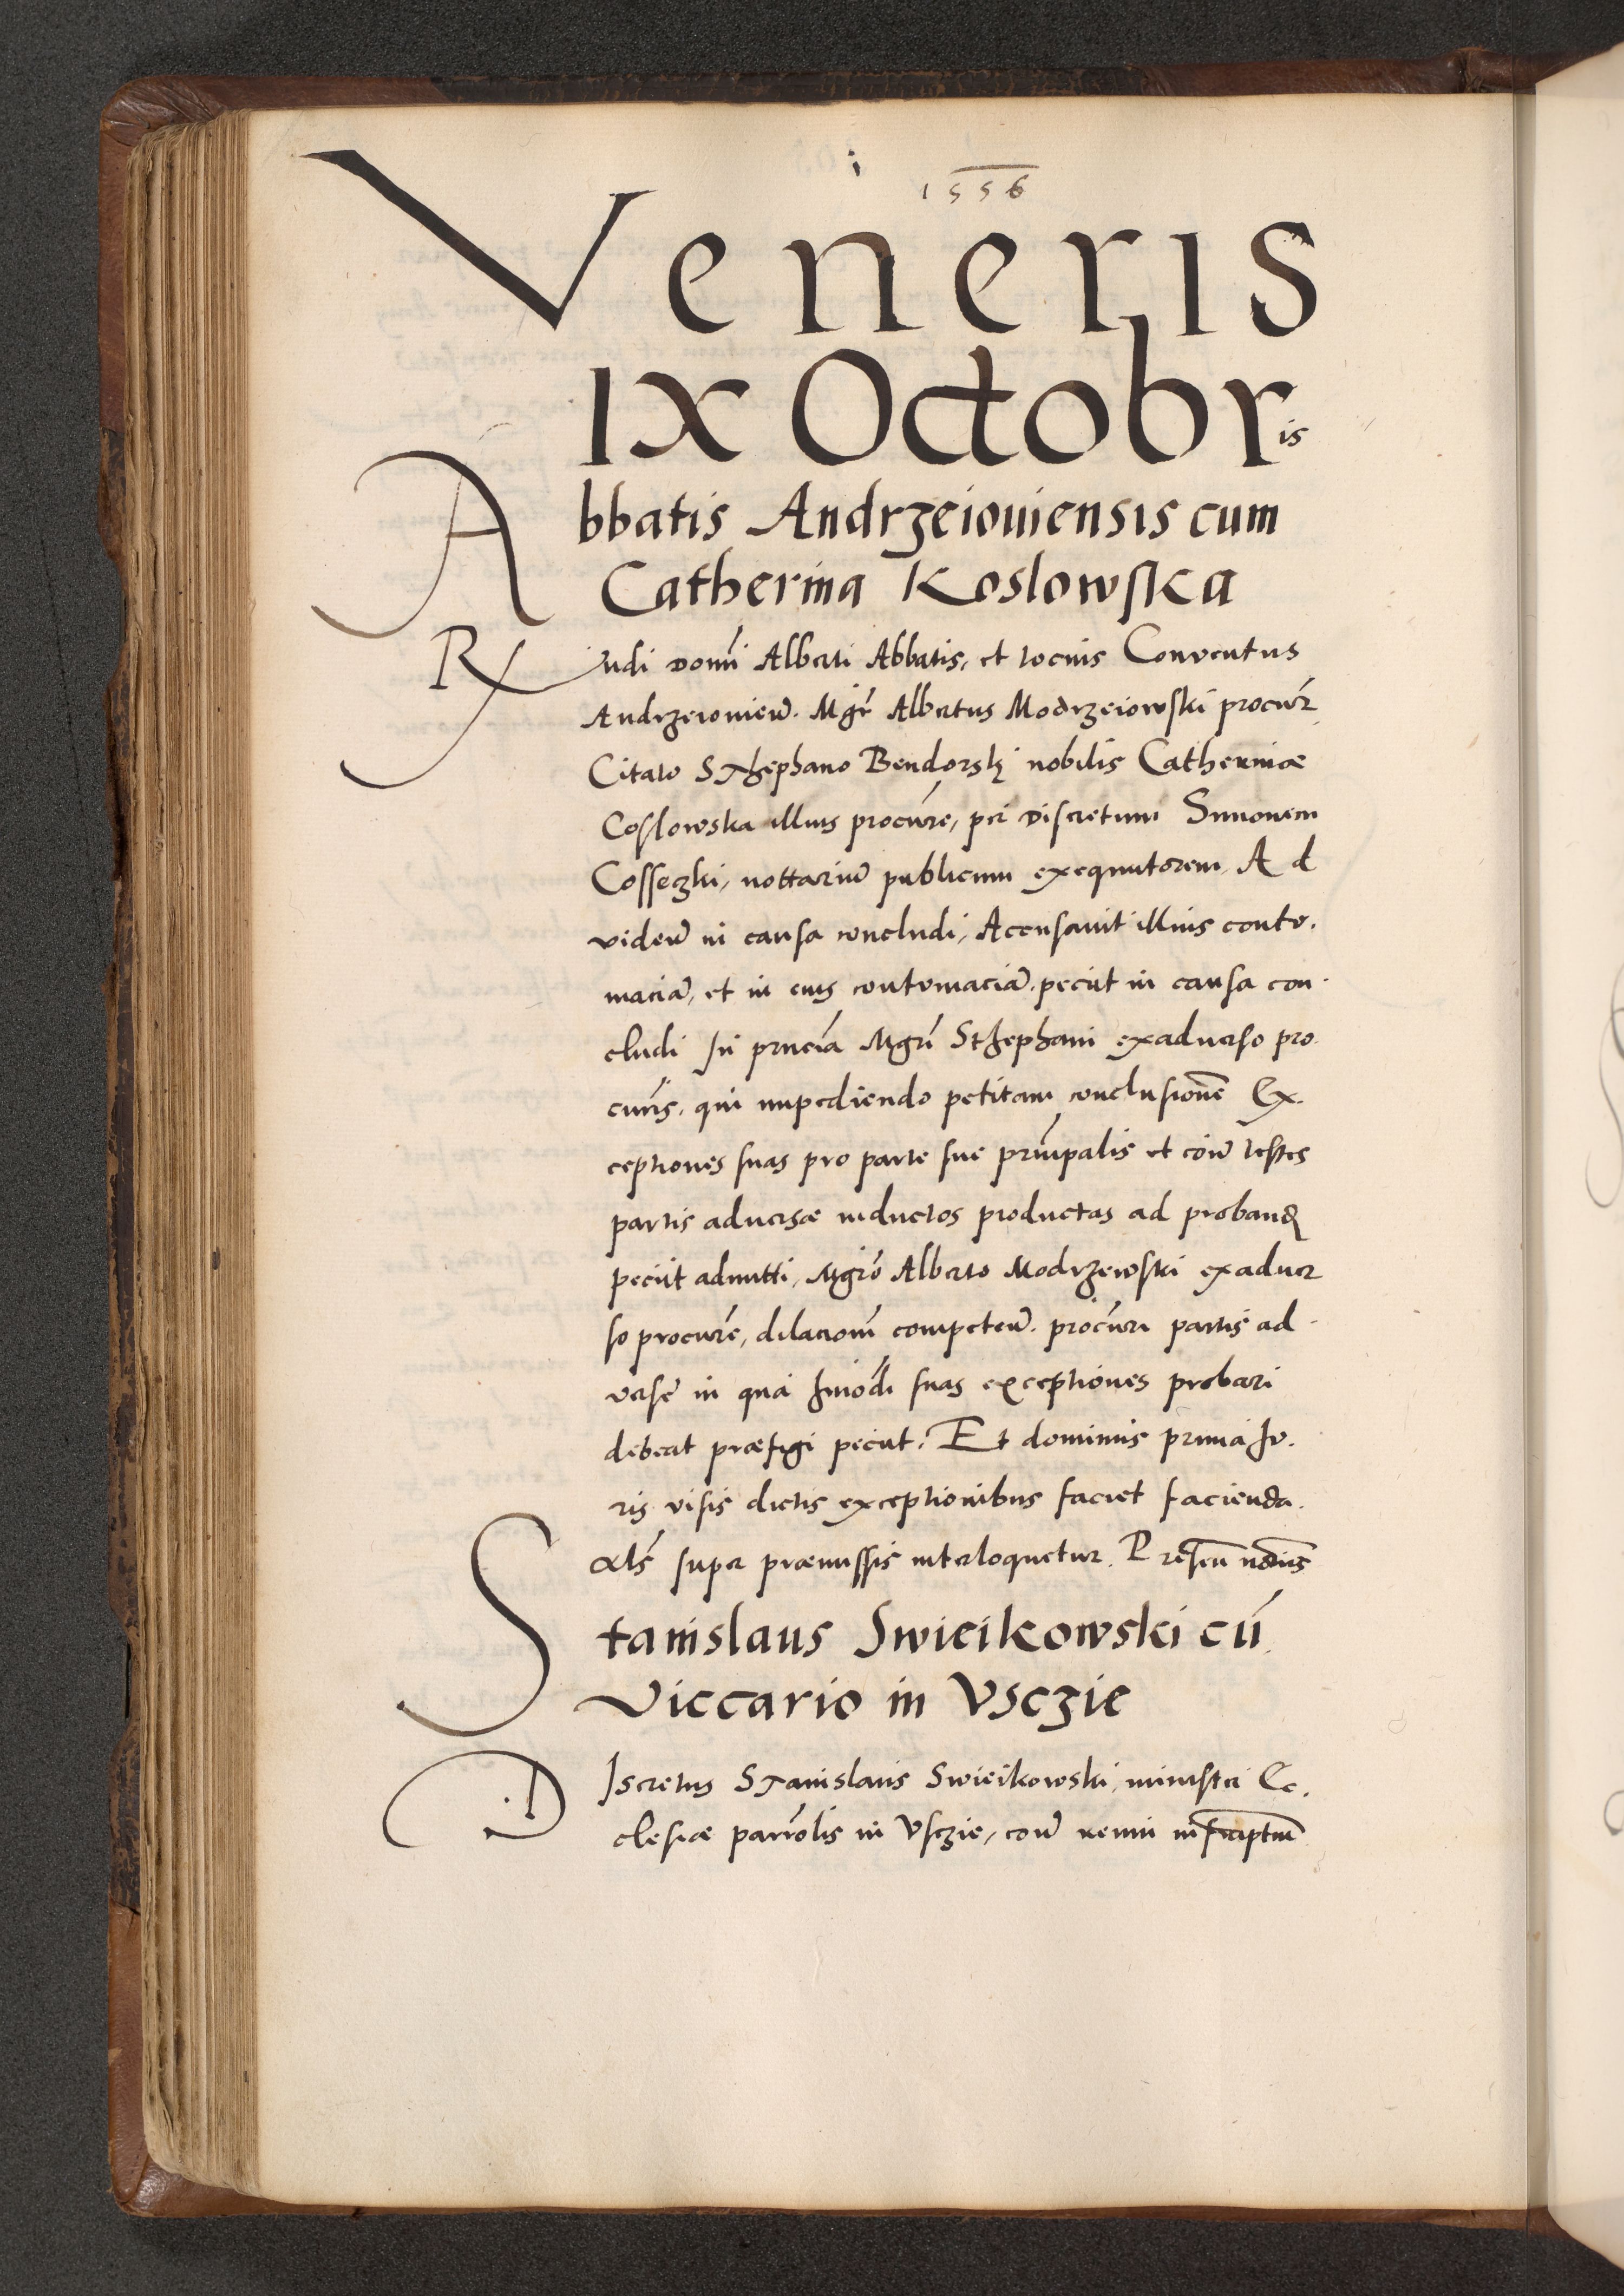 1556
Veneris
IX Octobris
Abbatis Andrzeiouiensis cum
Catherina Koslowska
Rndi domi Alberti Abbatis, et tocius Conuentus
Andrzeiouien. Mgr Albertus Modrzeiowski procur
Citato Sthephano Bendorski nobilis Catherinæ
Coslowska illius procure, per discretum Simonem
Cosseczki, nottariu publicum exequutorem, Ad
videu in causa concludi, Accusauit illius contu.
macia, et in eius contumacia. peciit in causa con.
cludi In pncia Mgri Sthephani exaduerso pro.
curis. qui impediendo petitam conclusione Ex.
ceptiones suas pro parte sue principalis et con testes
partis aduersæ inductos productas ad proband
peciit admitti, Mgro Alberto Modrzewski exaduer
so procure, dilaciom competen. procuri partis ad
verse in qua hmodi suas exceptiones probari
debeat præfigi peciit. Et dominus prima Iu.
ris visis dictis exceptionibus faciet facienda.
als super præmissis interloquetur. Presen
Stanislaus Swieikowski cu
Viccario in Vsczie
Discretus Stanislaus Swieikowski, ministri Ec.
clesiæ parrolis in Vsczie, con infrascriptum